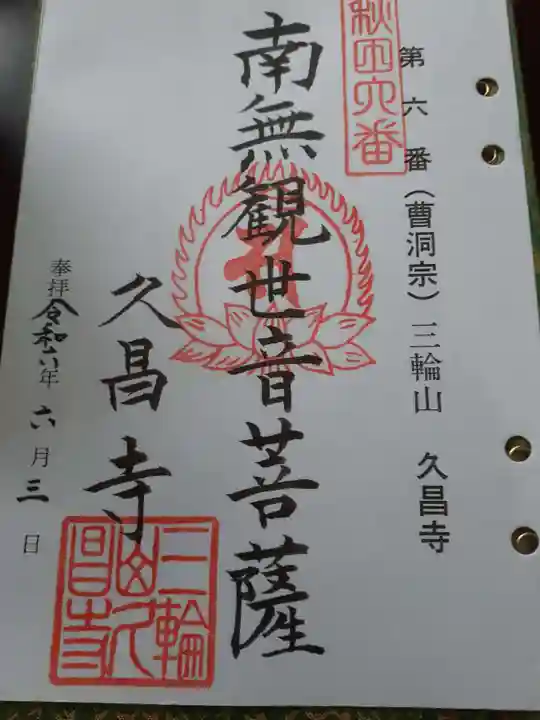 第六番(曹洞宗)三輪山 久昌寺
秋田六番
南無観世音菩薩
久昌寺
奉拝 令和六年 六月 三日
三輪山久昌寺